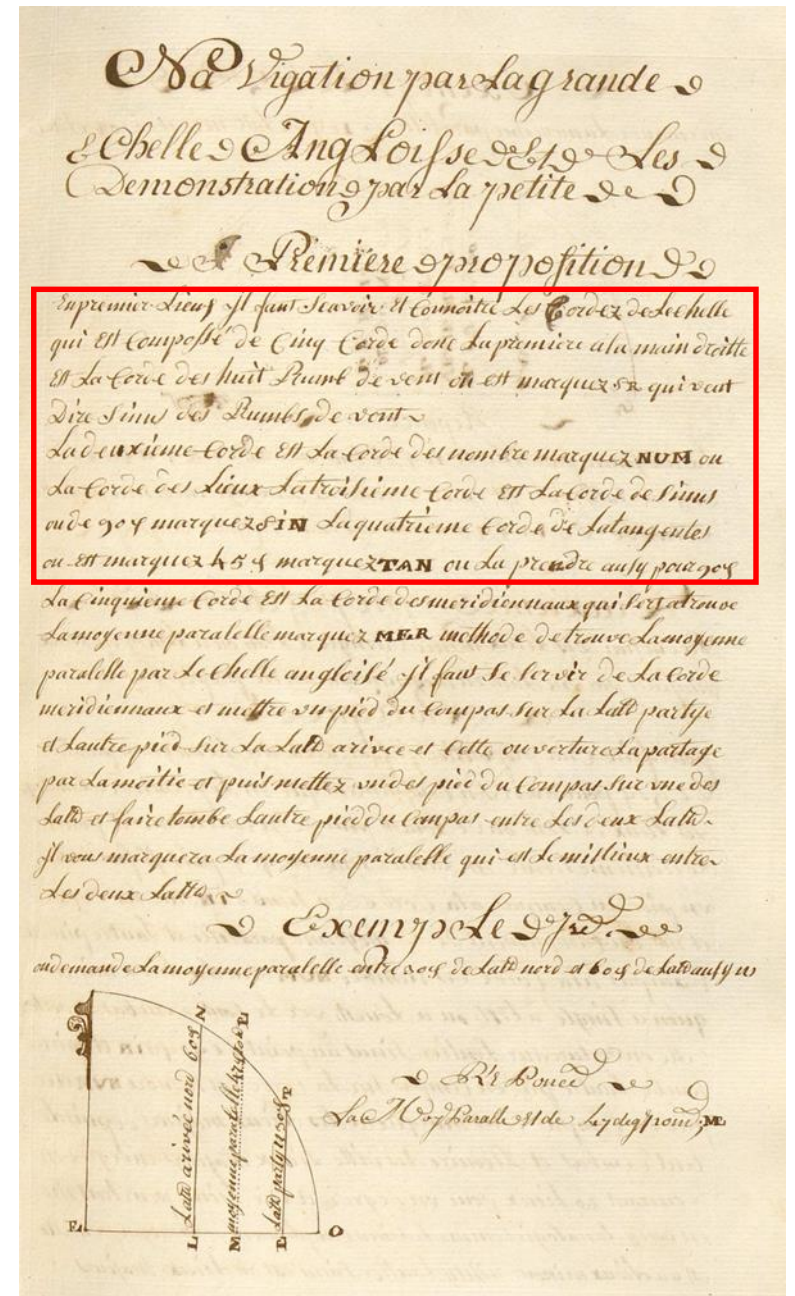 Na Vigation par La grande
EChelle AngLoisse Et Les
Demonstration par La petite
Premiere proposition
En premier Lieus Jl faut Scavoir Et Connoitre Les Cordez de Lechelle
qui Est Composse de Cinq Corde donc La premiere a la main droitte
Est La Corde des huit Rumb de vent ou est marquez SR qui veut
Dire Sinus des Rumbs de vent
La deuxieme Corde Est La Corde des nombre marquez NUM ou
La Corde des Lieux La troisieme Corde Est La Corde de Sinus
ou de 90 d marquez SIN La quatrieme Corde de La tangentes
ou Est marquez 45 d marquez TAN ou La prendre ausy pour 90 d
La Cinquieme Corde Est La Corde des meridiennaux qui Sers a trouve
La moyenne paralelle marquez MER methode de trouve La moyenne
paralelle par Lechelle angloisé Jl faut Se Servir de La Corde
meridiennaux et mettre un pied du Compas Sur La Latd partye
et Lautre pied Sur La Latd arivee et Cette ouverture La partage
par La moitie et puis mettez un des pied du Compas Sur une des
Latd et faire tombe Lautre pied du Compas entre Les deux Latd
Jl vous marquera La moyenne paralelle qui est Le millieux entre
Les deux Latts
Exemple
on demande La moyenne paralelle entre 20 d de Latd nord et 60 d de Latd ausy N
Latd arivée nord 60 d N
moyenne paralelle
Latd partye
Réponce
La Moy Paralle Est de
E L M L O